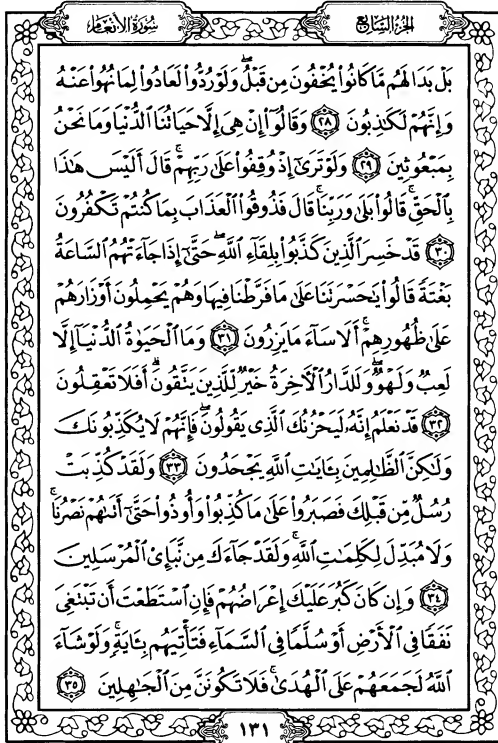 سورة الأنعام
الجزء السابع
بَلْ بَدَا لَهُم مَّا كَانُوا۟ يُخْفُونَ مِن قَبْلُ ۖ وَلَوْ رُدُّوا۟ لَعَادُوا۟ لِمَا نُهُوا۟ عَنْهُ
وَإِنَّهُمْ لَكَـٰذِبُونَ ٢٨ وَقَالُوٓا۟ إِنْ هِىَ إِلَّا حَيَاتُنَا ٱلدُّنْيَا وَمَا نَحْنُ
بِمَبْعُوثِينَ ٢٩ وَلَوْ تَرَىٰٓ إِذْ وُقِفُوا۟ عَلَىٰ رَبِّهِمْ ۚ قَالَ أَلَيْسَ هَـٰذَا
بِٱلْحَقِّ ۚ قَالُوا۟ بَلَىٰ وَرَبِّنَا ۚ قَالَ فَذُوقُوا۟ ٱلْعَذَابَ بِمَا كُنتُمْ تَكْفُرُونَ
٣٠ قَدْ خَسِرَ ٱلَّذِينَ كَذَّبُوا۟ بِلِقَآءِ ٱللَّهِ ۖ حَتَّىٰٓ إِذَا جَآءَتْهُمُ ٱلسَّاعَةُ
بَغْتَةً قَالُوا۟ يَـٰحَسْرَتَنَا عَلَىٰ مَا فَرَّطْنَا فِيهَا وَهُمْ يَحْمِلُونَ أَوْزَارَهُمْ
عَلَىٰ ظُهُورِهِمْ ۚ أَلَا سَآءَ مَا يَزِرُونَ ٣١ وَمَا ٱلْحَيَوٰةُ ٱلدُّنْيَآ إِلَّا
لَعِبٌ وَلَهْوٌ ۖ وَلَلدَّارُ ٱلْـَٔاخِرَةُ خَيْرٌ لِّلَّذِينَ يَتَّقُونَ ۗ أَفَلَا تَعْقِلُونَ
٣٢ قَدْ نَعْلَمُ إِنَّهُۥ لَيَحْزُنُكَ ٱلَّذِى يَقُولُونَ ۖ فَإِنَّهُمْ لَا يُكَذِّبُونَكَ
وَلَـٰكِنَّ ٱلظَّـٰلِمِينَ بِـَٔايَـٰتِ ٱللَّهِ يَجْحَدُونَ ٣٣ وَلَقَدْ كُذِّبَتْ
رُسُلٌ مِّن قَبْلِكَ فَصَبَرُوا۟ عَلَىٰ مَا كُذِّبُوا۟ وَأُوذُوا۟ حَتَّىٰٓ أَتَىٰهُمْ نَصْرُنَا ۚ
وَلَا مُبَدِّلَ لِكَلِمَـٰتِ ٱللَّهِ ۚ وَلَقَدْ جَآءَكَ مِن نَّبَإِى۟ ٱلْمُرْسَلِينَ
٣٤ وَإِن كَانَ كَبُرَ عَلَيْكَ إِعْرَاضُهُمْ فَإِنِ ٱسْتَطَعْتَ أَن تَبْتَغِىَ
نَفَقًا فِى ٱلْأَرْضِ أَوْ سُلَّمًا فِى ٱلسَّمَآءِ فَتَأْتِيَهُم بِـَٔايَةٍ ۚ وَلَوْ شَآءَ
ٱللَّهُ لَجَمَعَهُمْ عَلَى ٱلْهُدَىٰ ۚ فَلَا تَكُونَنَّ مِنَ ٱلْجَـٰهِلِينَ ٣٥
١٣١